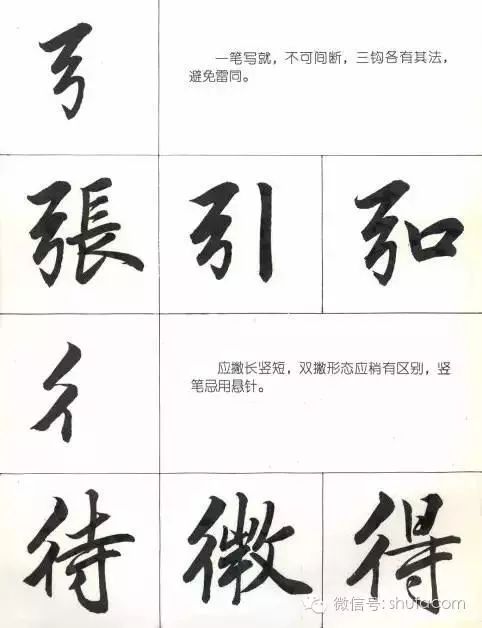 弓
一笔写就，不可间断，三钩各有其法，
避免雷同。
張 引
彳
应撇长竖短，双撇形态应稍有区别，竖
笔忌用悬针。
待 微 得
微信号: shufacom